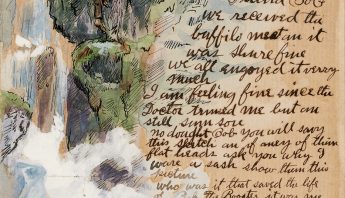 Friend Bob
we received the
buffilo meet in it
was shure fine
we all engoyed it verry
much
I am feeling fine since the
Doctor trimed me but am
still sum sore
no dought Bob you will savy
this sketch an if aney of them
flat heads ask you why I
ware a sash show them this
Picture
who was it that saved the life
of the Booster it was me